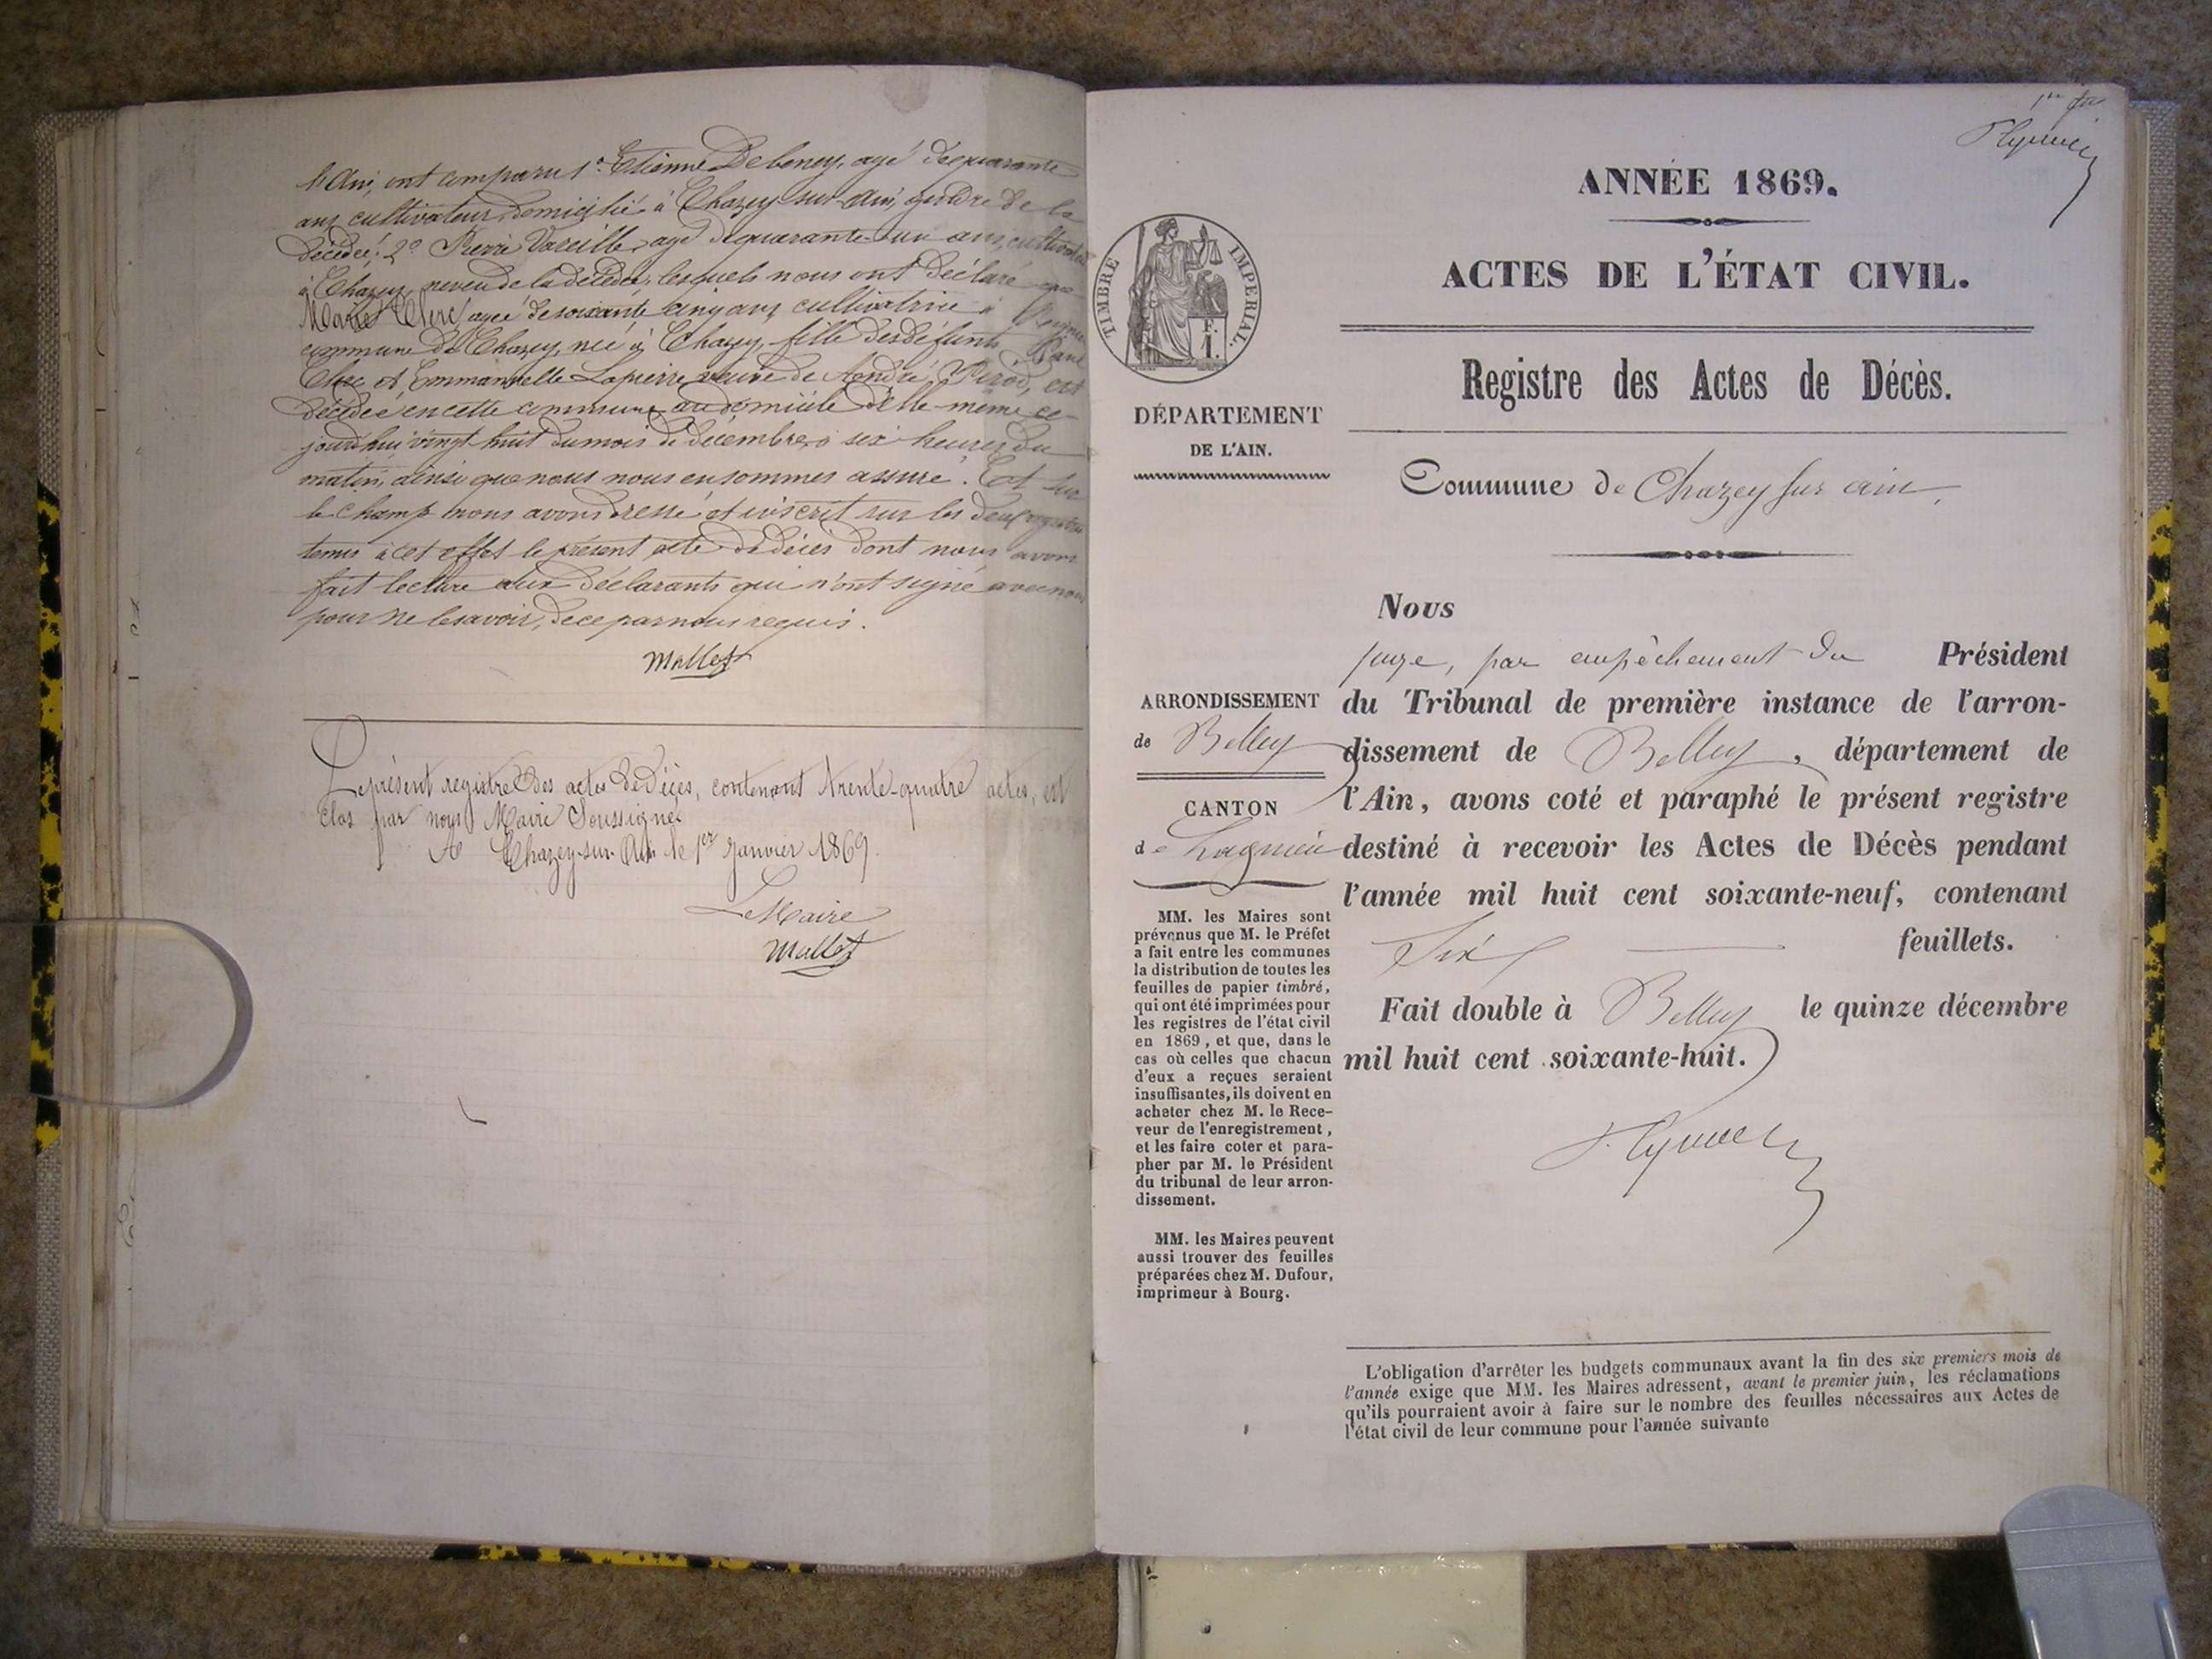 l'Ain, ont comparu 1° Etienne Debeney, agé de quarante
ans cultivateur, domicilié à Chazey-sur-Ain, gendre de la
décédée; 2° Pierre Vareille, agé de quarante-un ans, cultivateur
à Chazey, neveu de la décédée, lesquels nous ont déclaré que
Marie agée de soixante cinq ans, cultivatrice à
commune de Chazey, née à Chazey, fille des défunts
et Emmanuelle Lapierre, veuve de André Pérod, est
décédée en cette commune au domicile d'elle-même ce-
jourd'hui vingt huit du mois de décembre, à six heures du
matin, ainsi que nous nous en sommes assuré. Et sur
le champ nous avons dressé et inscrit sur les deux registres
tenus à cet effet le présent acte de décès dont nous avons
fait lecture aux déclarants qui n'ont signé avec nous
pour ne le savoir, de ce par nous requis.
Mallet
Le présent registre des actes de Décès, contenant trente-quatre actes, est
clos par nous Maire Soussigné
A Chazey-sur-Ain le 1er Janvier 1869.
Le Maire
Mallet
1er
ANNÉE 1869.
TIMBRE IMPERIAL.
F. 1.
ACTES DE L'ÉTAT CIVIL.
Registre des Actes de Décès.
DÉPARTEMENT
DE L'AIN.
Commune de Chazey sur ain
Nous
juge, par empêchement du Président
ARRONDISSEMENT
de Belley
CANTON
de Lagnieu
du Tribunal de première instance de l'arron-
dissement de Belley, département de
l'Ain, avons coté et paraphé le présent registre
destiné à recevoir les Actes de Décès pendant
l'année mil huit cent soixante-neuf, contenant
Six feuillets.
Fait double à Belley le quinze décembre
mil huit cent soixante-huit.
MM. les Maires sont
prévenus que M. le Préfet
a fait entre les communes
la distribution de toutes les
feuilles de papier timbré,
qui ont été imprimées pour
les registres de l'état civil
en 1869, et que, dans le
cas où celles que chacun
d'eux a reçues seraient
insuffisantes, ils doivent en
acheter chez M. le Rece-
veur de l'enregistrement,
et les faire coter et para-
pher par M. le Président
du tribunal de leur arron-
dissement.
MM. les Maires peuvent
aussi trouver des feuilles
préparées chez M. Dufour,
imprimeur à Bourg.
L'obligation d'arrêter les budgets communaux avant la fin des six premiers mois de
l'année exige que MM. les Maires adressent, avant le premier juin, les réclamations
qu'ils pourraient avoir à faire sur le nombre des feuilles nécessaires aux Actes de
l'état civil de leur commune pour l'année suivante